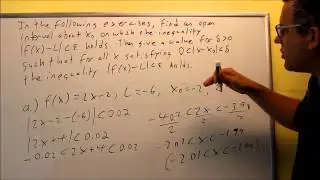 In the following exercises, find an open
interval about x₀ on which the inequality
|f(x)-L|<ε holds. Then give a value for δ>0
such that for all x satisfying 0<|x-x₀|<δ
the inequality |f(x)-L|<ε holds.
a.) f(x)=2x-2, L=-6, x₀=-2,
|2x-2-(-6)|<0.02
|2x+4|<0.02
-0.02<2x+4<0.02
-4.02/2 < 2x/2 < -3.98
-2.01<x<-1.99
(-2.01<x<-1.99)